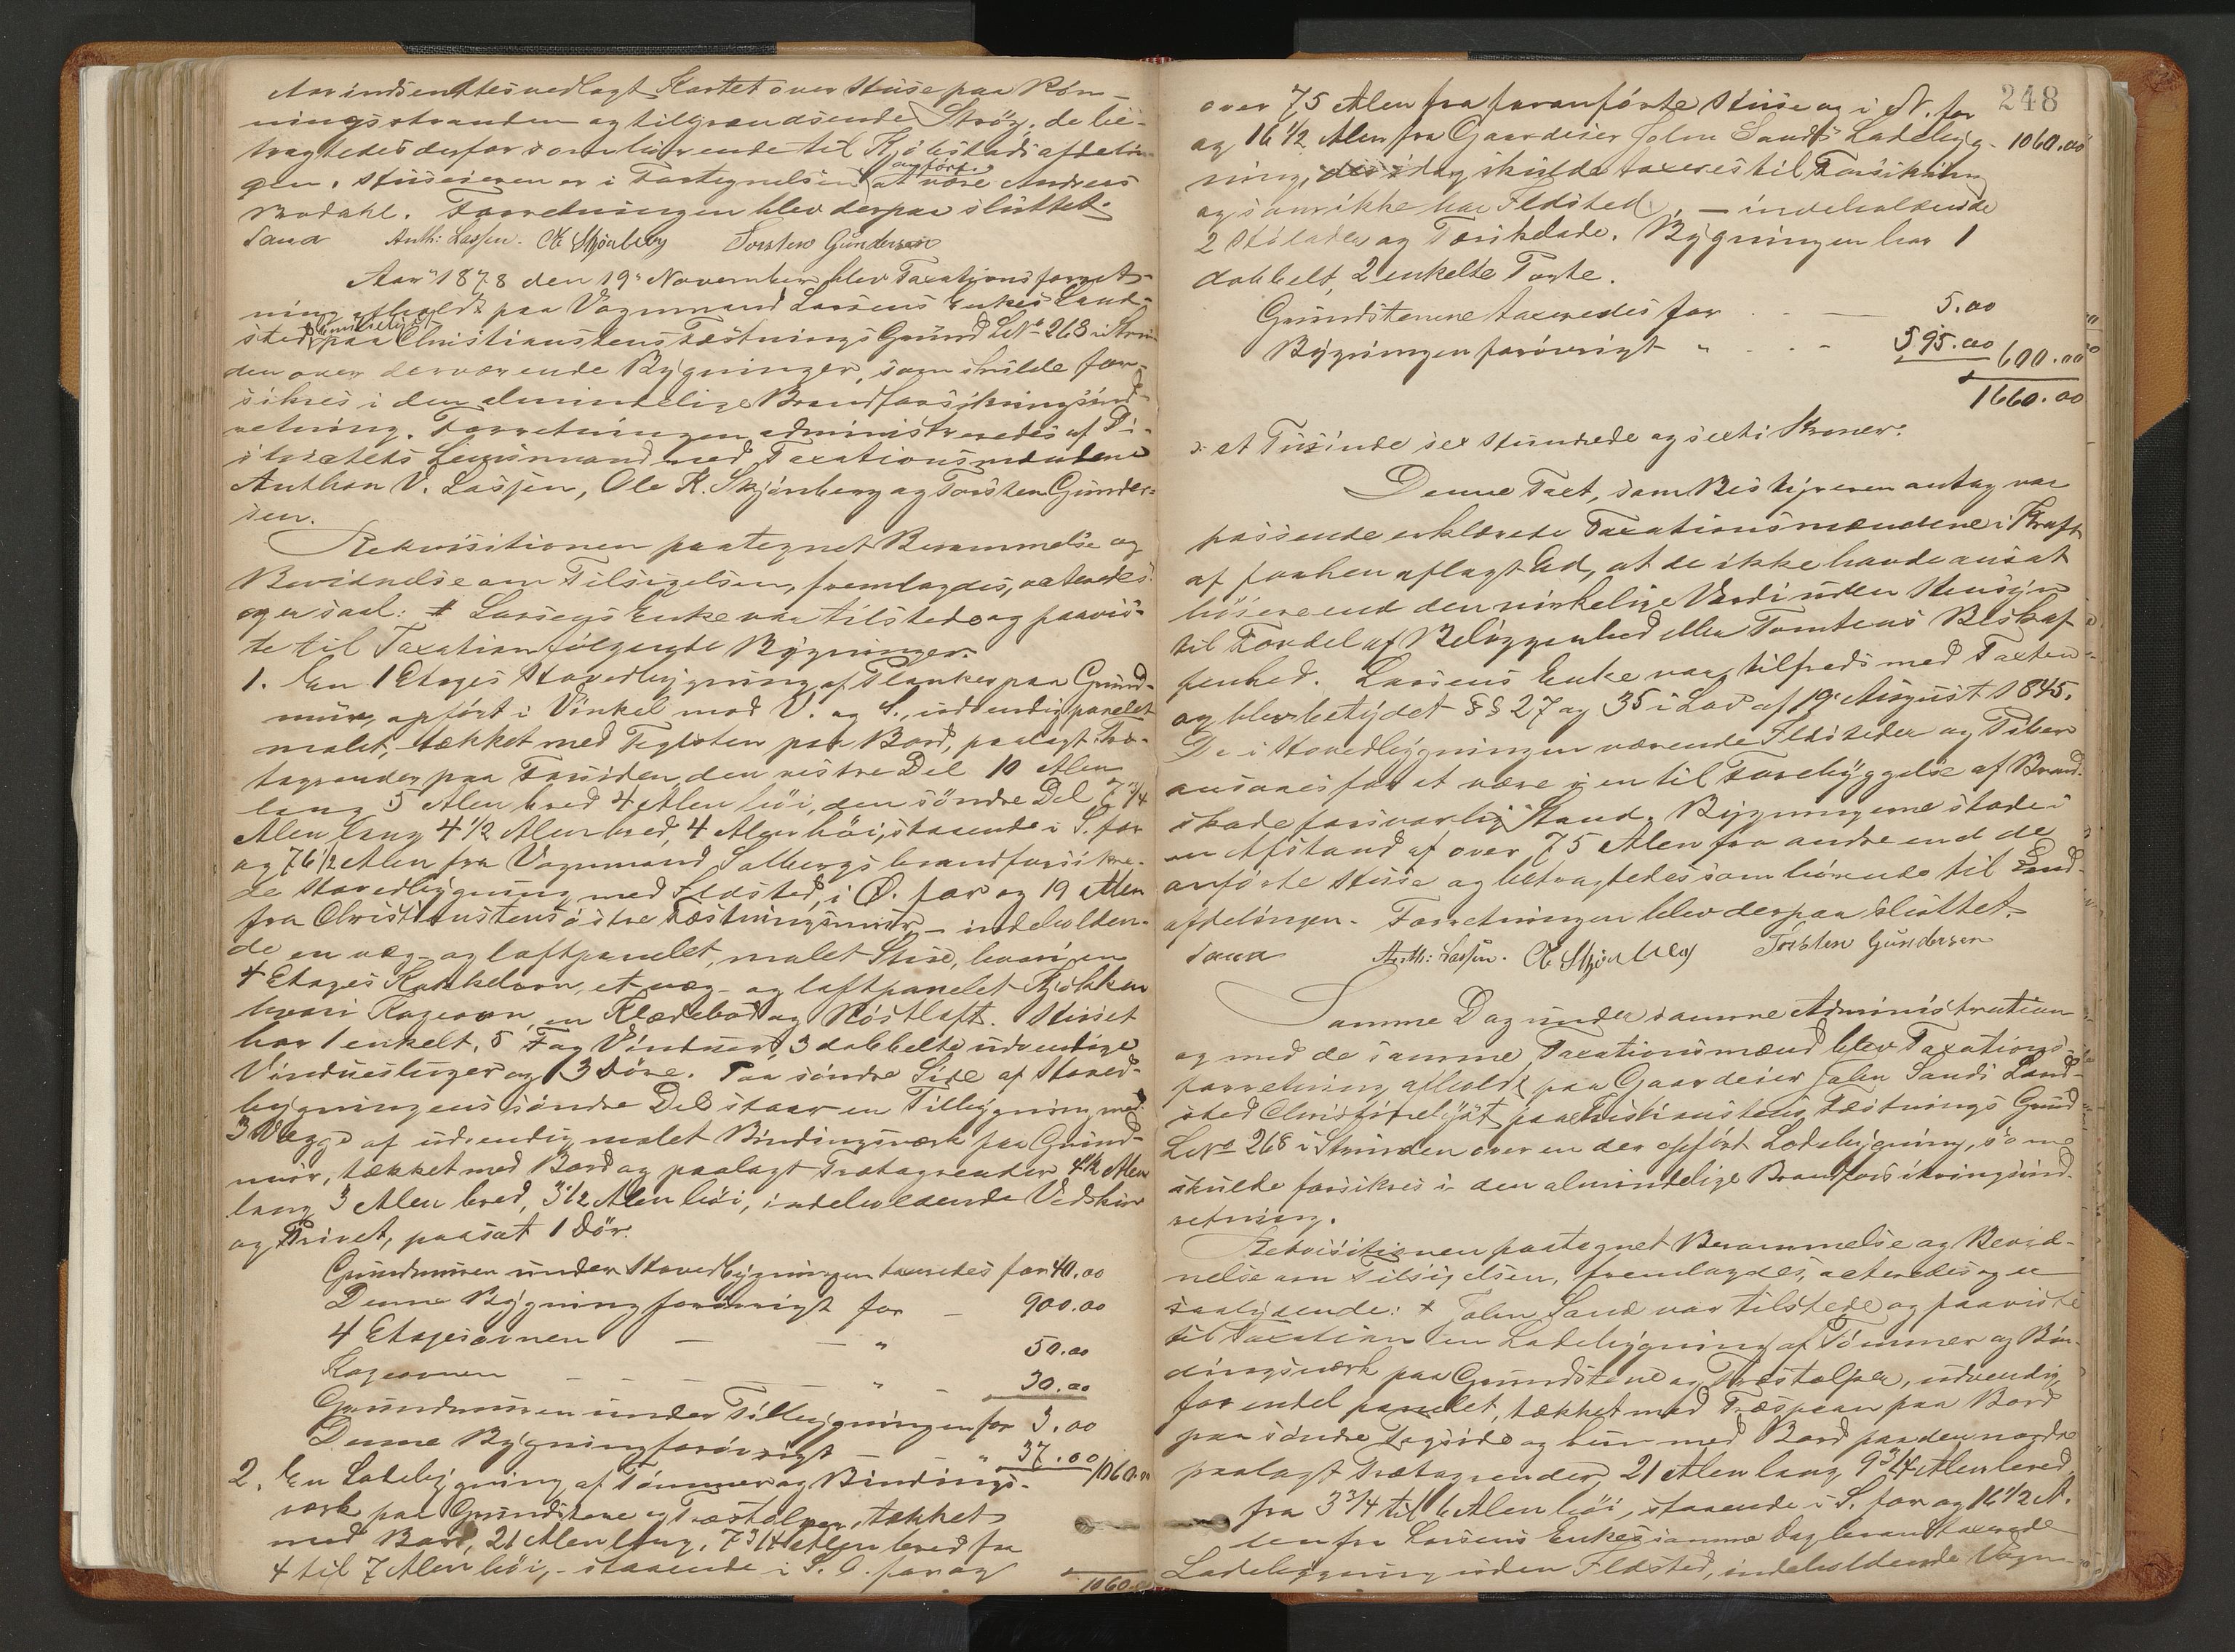 Aar indsendtes vedlagt Kartet over Huse paa Røn-
ningsstranden og tilgrændsende Strøg, de be-
tragtedes derfor som hørende til Kjøbstads afdelin-
gen. Huseieren er i Fortegnelsen opført at være Andreas
Modahl. Forretningen blev derpaa sluttet.
Sand Anth: Lassen. O K Skjønberg Torsten Gundersen
Aar 1878 den 19 November blev Taxationsforret-
ning afholdt paa Vognmand Larsens Enkes Land-
sted paa Christianstens Fæstnings Grund LNo 268 i Strin-
den over derværende Bygninger, som skulde for-
sikres i den almindelige Brandforsikringsind-
retning. Forretningen administreredes af Di-
striktets Lensmand med Taxationsmændene
Anthon V. Lassen, Ole K. Skjønberg og Torsten Gunder-
sen.
Rekvisitionen paategnet Berammelse og
Bevidnelse om Tilsigelsen, fremlagdes, acteredes
og er saal: # Larsens Enke var tilstede og paavis-
te til Taxation følgende Bygninger.
1. En 1 Etages Hovedbygning af Planker paa Grund-
muur, opført i Vinkel mod V. og S., udvendig panelet
malet, tækket med Teglsten paa Bord, paalagt Træ-
tagrender paa Forsiden, den vestre Del 10 Alen
lang 5 Alen bred 4 Alen høi, den søndre Del 7 3/4
Alen lang 4 1/2 Alen bred, 4 Alen høi, staaende i S. for
og 76 1/2 Alen fra Vognmand Solbergs brandforsikre-
de Hovedbygning med Ildsted, i Ø. for og 19 Alen
fra Christianstens østre Fæstningsmuur, - indeholden-
de en væg- og loftpanelet, malet Stue, hvori en
4 Etages Kakkelovn, et væg- og loftpanelet Kjøkken
hvori Kogeovn, en Klædebod og Røstloft. Huset
har 1 enkelt, 5 Fag Vinduer, 3 dobbelte udvendige
Vinduesluger og 3 Døre. Paa søndre Side af Hoved-
bygningens søndre Del staar en Tilbygning med
3 Vægge af udvendig malet Bindingsværk paa Grund-
muur, tækket med Bord og paalagt Trætagrender 4 1/2 Alen
lang 3 Alen bred, 3 1/2 Alen høi, indeholdende Vedskur
og Privet, paasat 1 Dør.
Grundmuren under Hovedbygningen taxeredes for 40.00
Denne Bygning forøvrigt for - 900.00
4 Etagesovnen - - " 50.00
Kogeovnen - - - - " - 30.00
Grundmuren under Tilbygningen for 3.00
Denne Bygning forøvrigt - " 37.00 1060.00
2. En Ladebygning af Tømmer og Bindings-
værk paa Grundstene og Træstolper, tækket
med Bord, 21 Alen lang, 7 3/4 Alen bred fra
4 til 7 Alen høi, - staaende i S. Ø. for og
1060.00
248
over 75 Alen fra foranførte Huse og i N. for
og 16 1/2 Alen fra Gaardeier John Sands Ladebyg- 1060.00
ning, idag skulde taxeres til Forsikring
og som ikke har Ildsted, - indeholdende
2 Stalader og Tærskelade. Bygningen har 1
dobbelt, 2 enkelte Porte.
Grundstenene taxeredes for . . - 5.00
Bygningen forøvrigt " . . - 595.00 600.00
1660.00
et Tusinde sex Hundrede og sexti Kroner.
Denne Taxt, som Bestyreren antog var
passende erklærede Taxationsmændene i Kraft
af forhen aflagt Ed, at de ikke havde ansat
høiere end den virkelige Værdi uden Hensyn
til Fordel af Beliggenhed eller Tomtens Beskaf-
fenhed. Larsens Enke var tilfreds med Taxten
og blev betydet §§ 27 og 35 i Lov af 19 August 1845.
De i Hovedbygningen værende Ildsteder og Piber
ansaaes for at være i en til Forebyggelse af Brand-
skade forsvarlig Stand. Bygningerne stode i
en Afstand af over 75 Alen fra andre end de
anførte Huse og betragtedes som hørende til Land-
afdelingen. Forretningen blev derpaa sluttet.
Sand Anth: Lassen. O K Skjønberg Torsten Gundersen
Samme Dag under samme Administration
og med de samme Taxationsmænd blev Taxations-
forretning afholdt paa Gaardeier John Sands Land-
sted Christinelyst paa Christianstens Fæstnings Grund
LNo 268 i Strinden over en der opført Ladebygning, som
skulde forsikres i den almindelige Brandforsikringsind-
retning.
Rekvisitionen paategnet Berammelse og Bevid-
nelse om Tilsigelsen, fremlagdes, acteredes og er
saalydende: # John Sand var tilstede og paaviste
til Taxation en Ladebygning af Tømmer og Bin-
dingsværk paa Grundstene og Træstolper, udvendig
for endel panelet, tækket med Træspaan paa Bord
paa søndre Tagside og kun med Bord paa den nordre
paalagt Trætagrender, 21 Alen lang 9 3/4 Alen bred
fra 3 3/4 til 6 Alen høi, staaende i S. for og 16 1/2 A-
len fra Larsens Enkes samme Dag brandtaxerede
Ladebygning uden Ildsted, indeholdende Vogn-